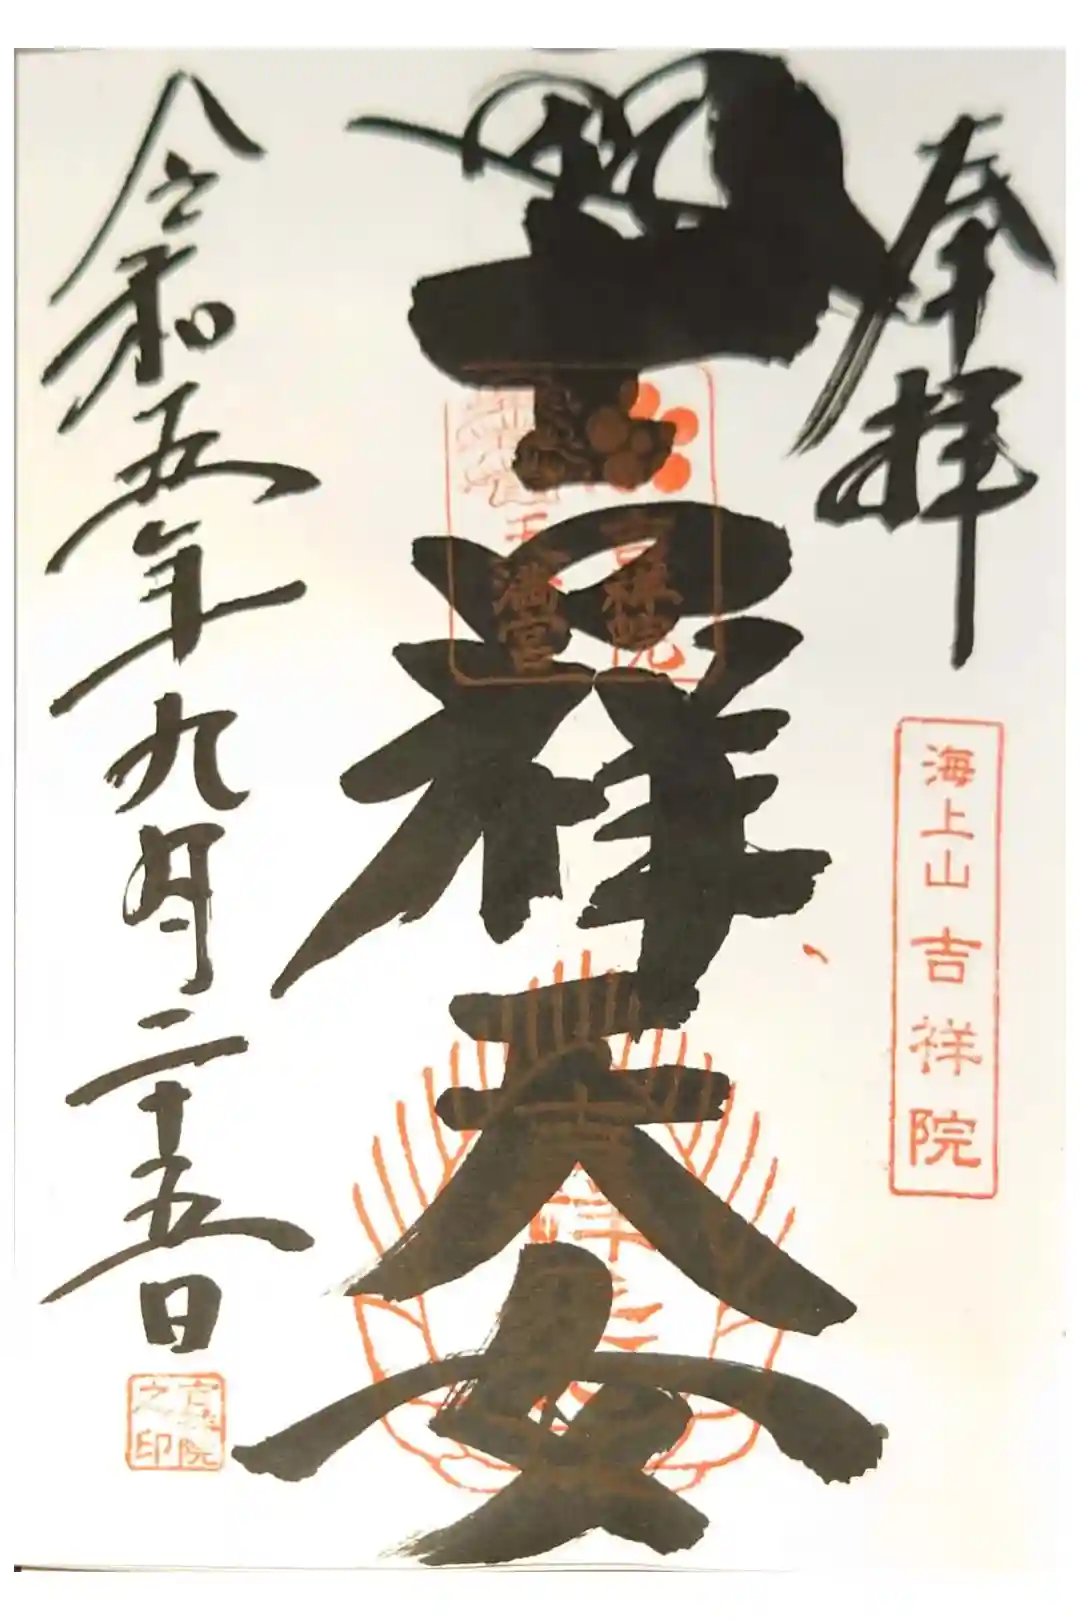 奉拝
海上山吉祥院
吉祥天女
吉祥院
天満宮
令和五年九月二十五日
吉祥院
之印